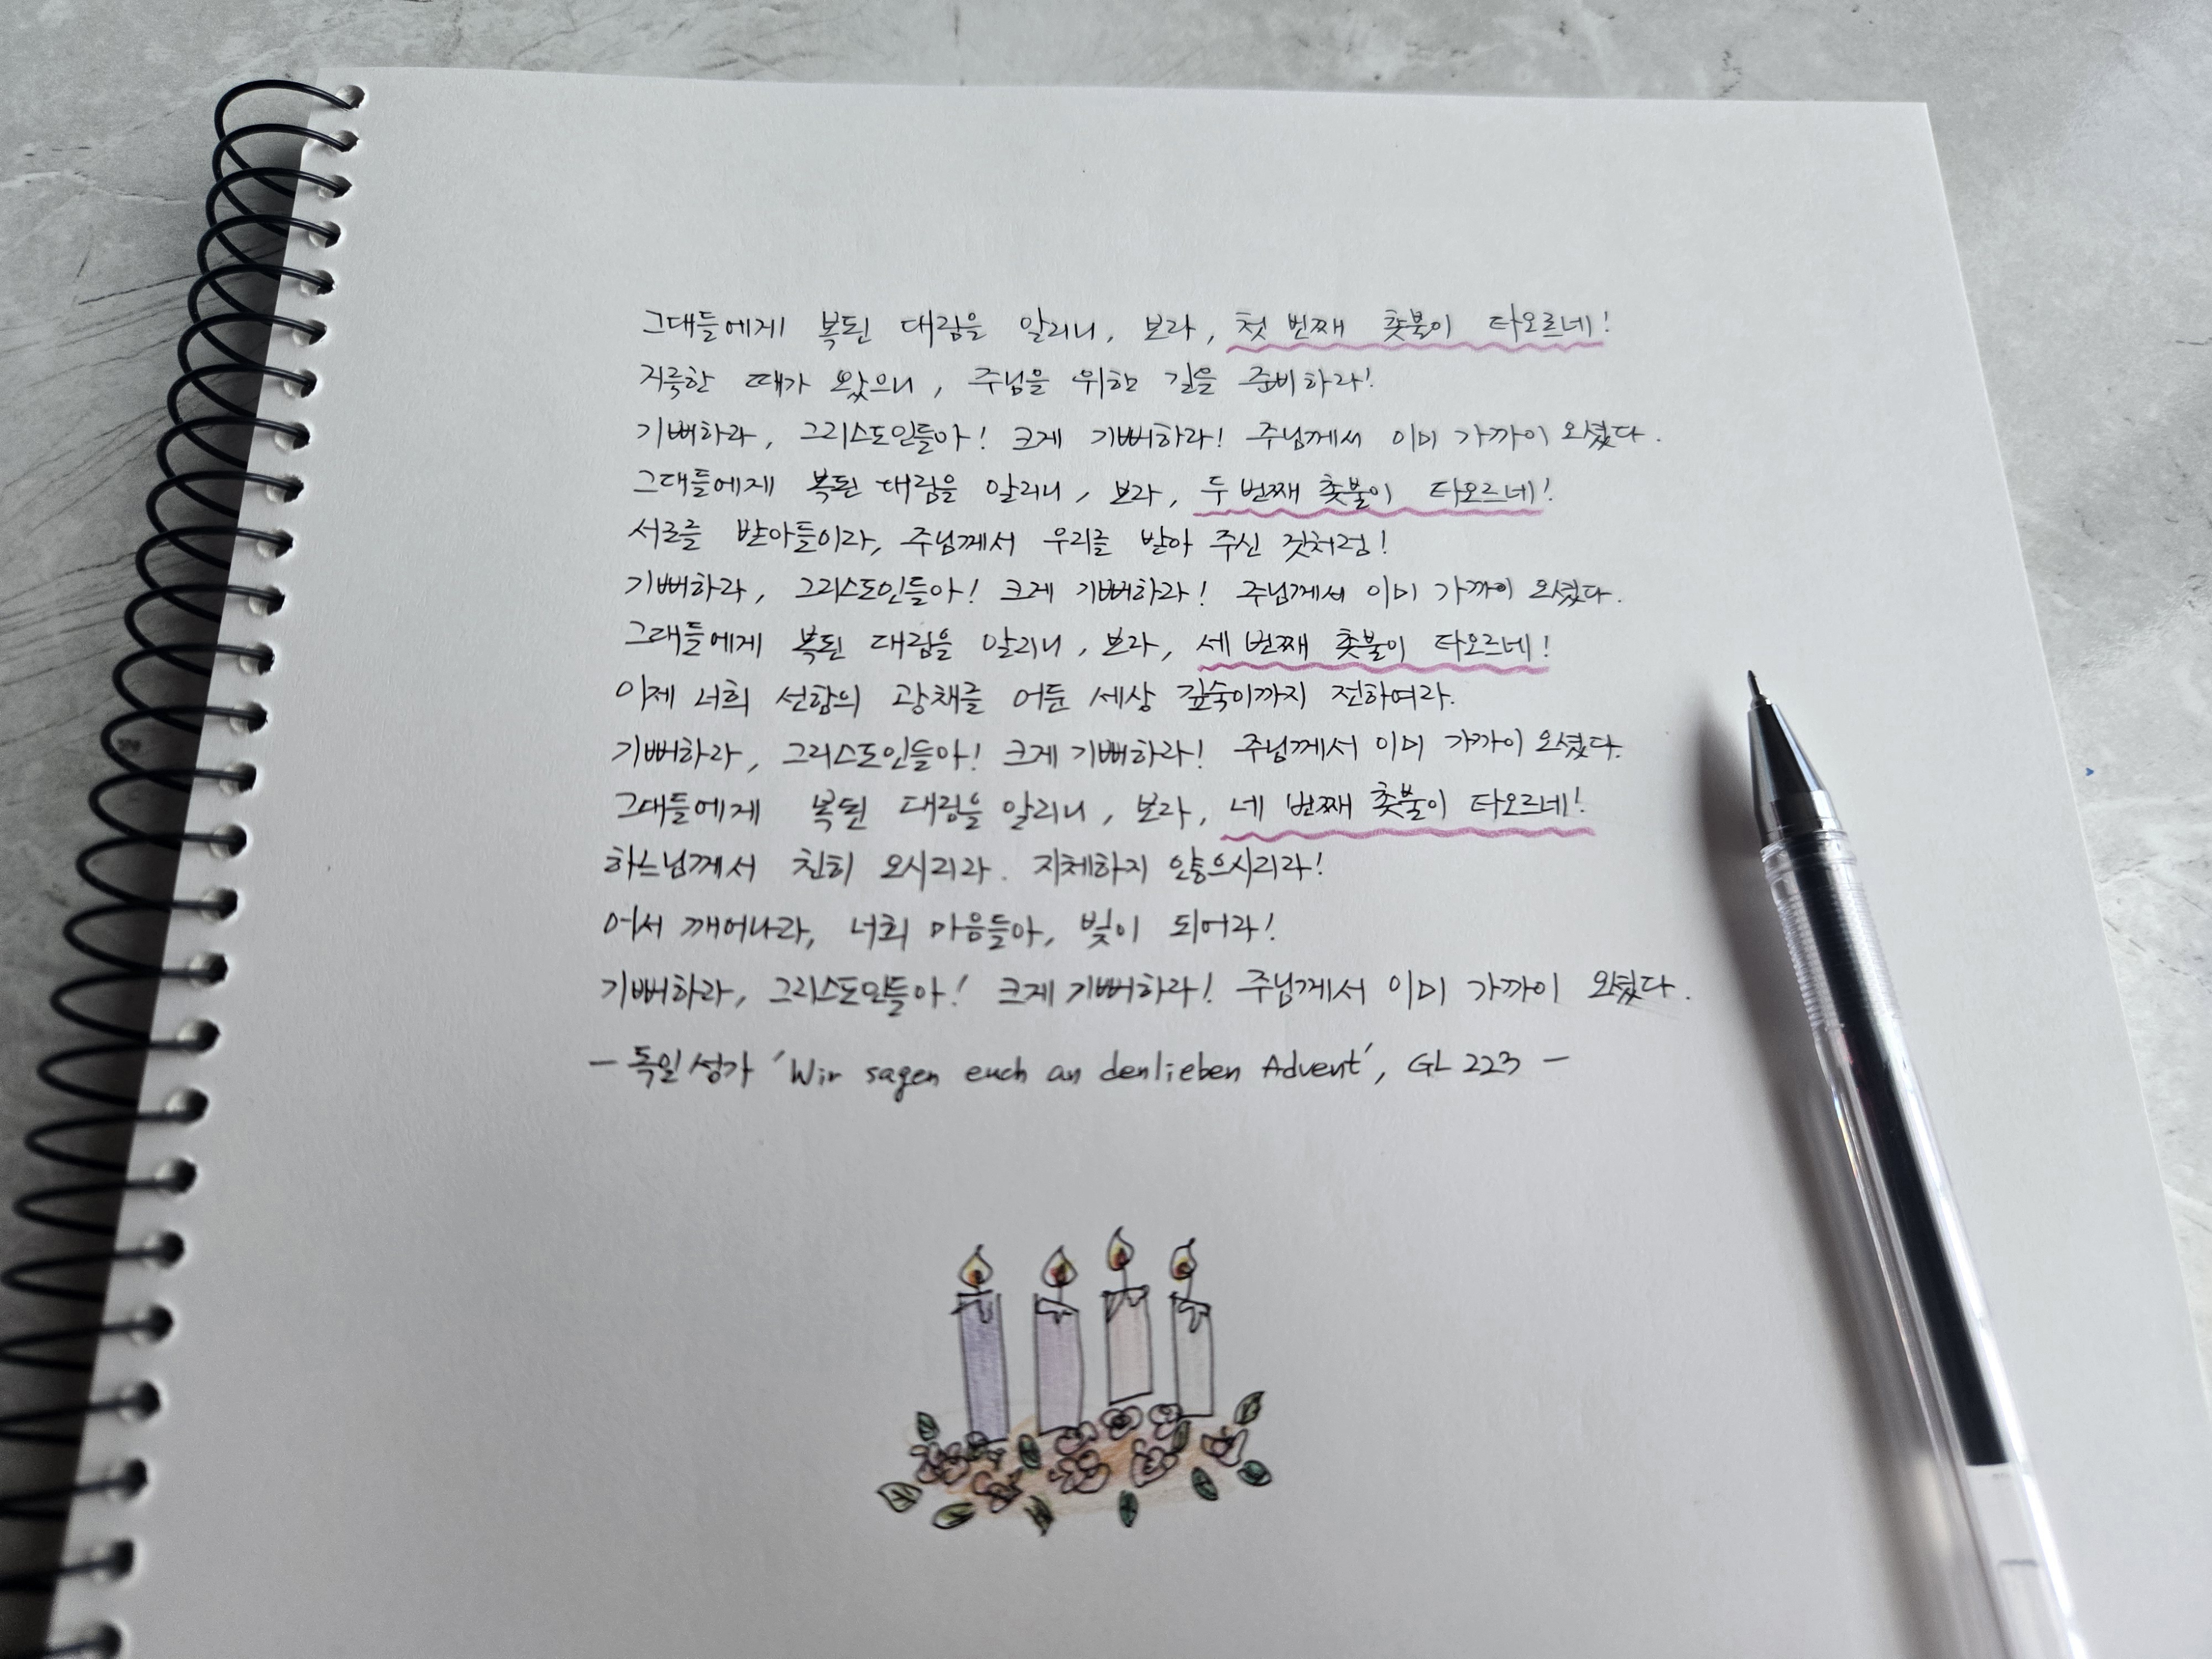 그대들에게 복된 대림을 알리니, 보라, 첫 번째 촛불이 타오르네!
거룩한 때가 왔으니, 주님을 위한 길을 준비하라!
기뻐하라, 그리스도인들아! 크게 기뻐하라! 주님께서 이미 가까이 오셨다.
그대들에게 복된 대림을 알리니, 보라, 두 번째 촛불이 타오르네!
서로를 받아들이라, 주님께서 우리를 받아 주신 것처럼!
기뻐하라, 그리스도인들아! 크게 기뻐하라! 주님께서 이미 가까이 오셨다.
그대들에게 복된 대림을 알리니, 보라, 세 번째 촛불이 타오르네!
이제 너희 선함의 광채를 어둔 세상 깊숙이까지 전하여라.
기뻐하라, 그리스도인들아! 크게 기뻐하라! 주님께서 이미 가까이 오셨다.
그대들에게 복된 대림을 알리니, 보라, 네 번째 촛불이 타오르네!
하느님께서 친히 오시리라. 지체하지 않으시리라!
어서 깨어나라, 너희 마음들아, 빛이 되어라!
기뻐하라, 그리스도인들아! 크게 기뻐하라! 주님께서 이미 가까이 오셨다.
- 독일성가 'Wir sagen euch an denlieben Advent', GL 223 -